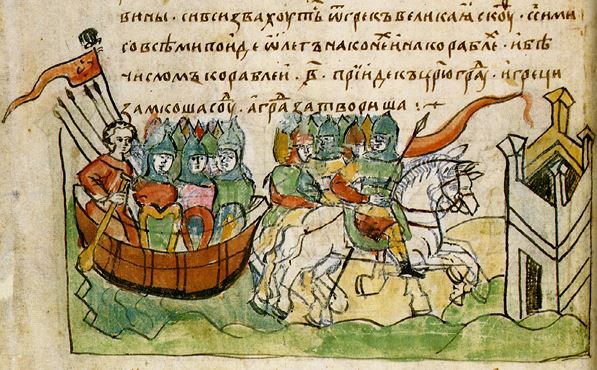 вины · сивсизвахоуть ѿгрекъвеликаꙗ скоуⷴ · ссими
совсѣмипоиде ѿлегънаконеⷯинакораблеⷯ · ибѣ
числомъкораблеи · в҃ · прїидекъцр҃юграⷣу · игреци
замкошасоуⷣ · аграⷣзатвориша :·